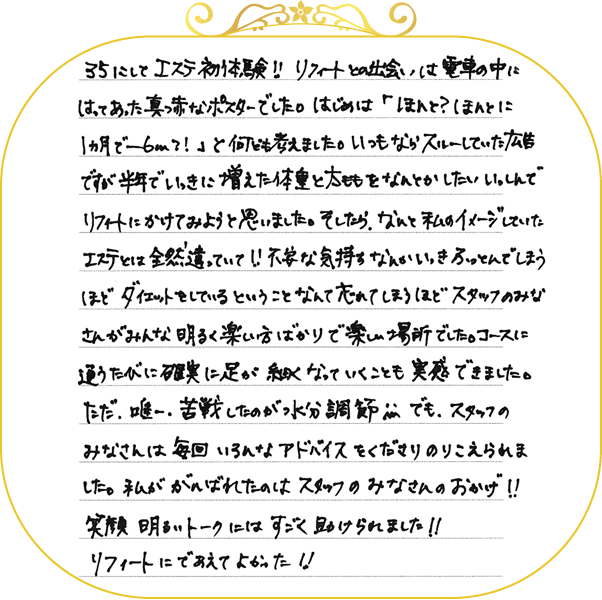 35にしてエステ初体験!! リフィートとの出会いは電車の中に
はってあった真っ赤なポスターでした。はじめは「ほんと?ほんとに
1カ月で−6cm?!」と何度も考えました。いつもならスルーしていた広告
ですが半年でいっきに増えた体重と太ももをなんとかしたいいっしんで
リフィートにかけてみようと思いました。そしたら、なんと私のイメージしていた
エステとは全然違っていて!!不安な気持ちなんかいっきふっとんでしまう
ほどダイエットをしているということなんて忘れてしまうほどスタッフのみな
さんがみんな明るく楽しい方ばかりで楽しい場所でした。コースに
通うたびに確実に足が細くなっていくことも実感できました。
ただ、唯一、苦戦したのが水分調節 でも、スタッフの
みなさんは毎回いろんなアドバイスをくださりのりこえられま
した。私ががんばれたのはスタッフのみなさんのおかげ!!
笑顔 明るいトークにはすごく助けられました!!
リフィートにであえてよかった!!